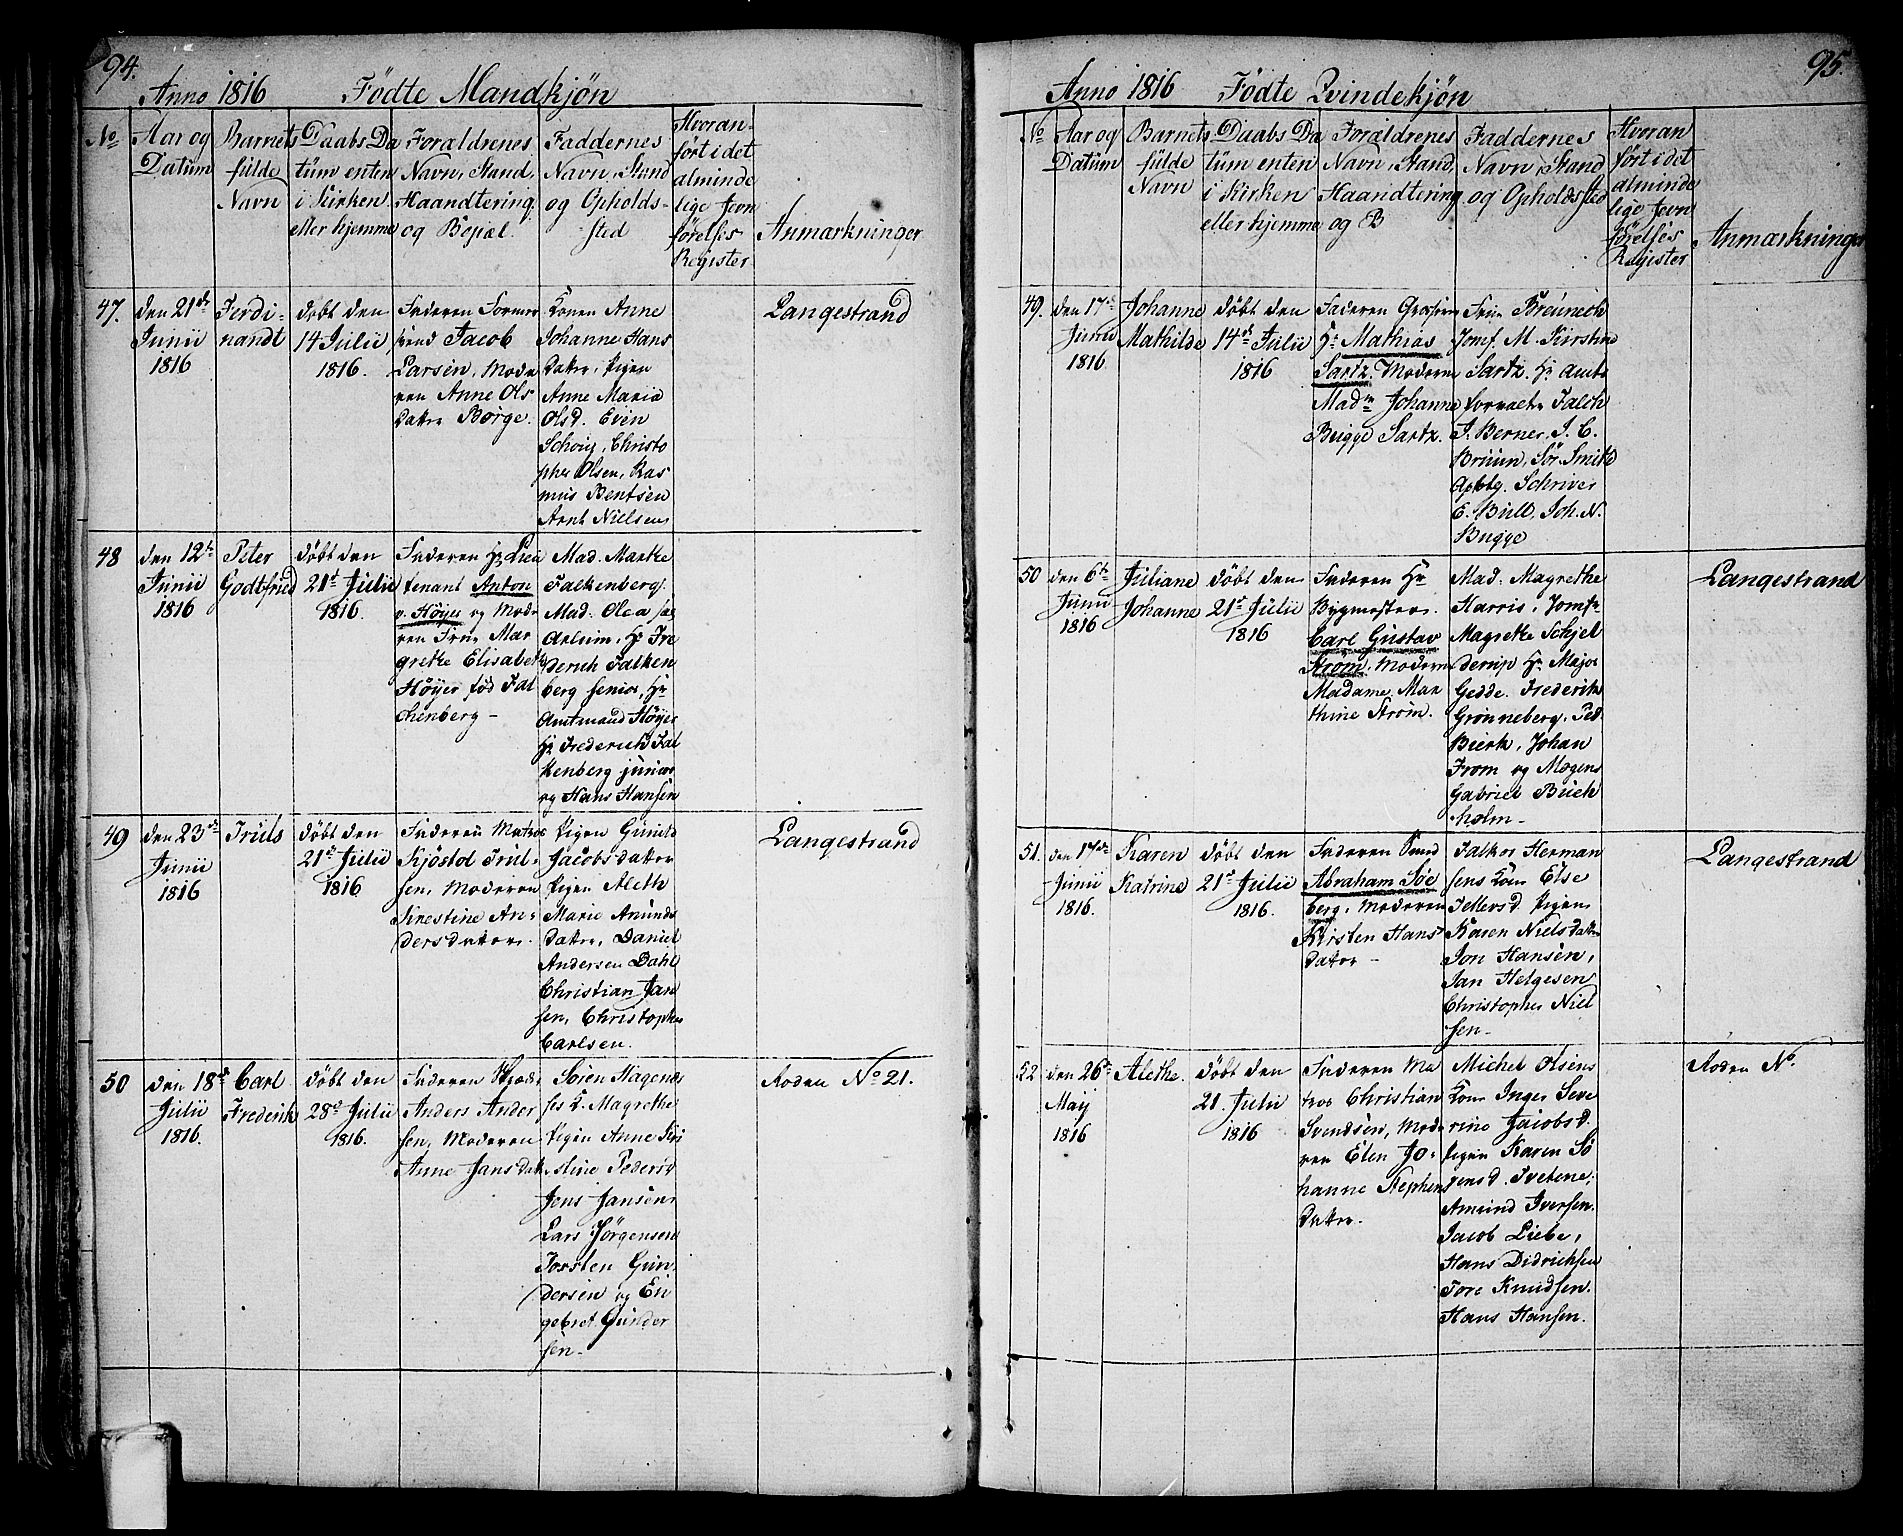 94.
Anno 1816 Födte Mandkjön
No
Aar og
Datum
Barnets
fulde
Navn
Daabs Da
tum enten
i Kirken
eller hjemme
Forældrenes
Navn, Stand,
Haandtering
og Bopæl.
Faddernes
Navn, Stand
og Opholds-
sted
Hvoran-
fört i det
alminde
lige Jevn
förelses
Register
Anmærkninger
47.
den 21de
Junii
1816
Ferdi-
nandt
döbt den
14 Julii
1816.
Faderen Former
svend Jacob
Larsen, Mode
ren Anne Ols
datter Börge.
Konen Anne
Johanne Hans
datter, Pigen
Anne Maria
Olsd. Even
Schoug, Christo
pher Olsen, Ras
mus Bentsen
Arnt Nielsen
Langestrand
48
den 12te
Junii
1816
Peter
Godtfried
döbt den
21st Julii
1816.
Faderen Hr Lieu
tenant Anton
v. Höyer og Mode
ren Frue Mar
grethe Elisabeth
Höyer föd Fal
chenberg -
Mad. Marthe
Falkenberg.
Mad. Olea sal
Aalum, Hr Fre
derich Falken
berg senior, Hr
Amtmand Höyer
Hr Frederich Fal
kenberg junior
og Hans Hansen
49
den 23de
Junii
1816
Truls
döbt den
21de Julii
1816
Faderen Matros
Kjöstol Trul-
sen, Moderen
Sinestine An-
dersdatter.
Pigen Gunild
Jacobsdatter
Pigen Aleth
Marie Amunds
datter, Daniel
Andersen Dahl
Christian Jan
sen, Christopher
Carlsen.
Langestrand
50
den 18de
Julii
1816.
Carl
Frederik
döbt den
28de Julii
1816.
Faderen
Anders Ander
sen, Moderen
Anne Jansdatter
Sören Hagens
ses K. Magrethe
Pigen Anne Kri
stine Peders
Jens Jansen
Lars Jörgensen
Torsten Gun
dersen og En
gebret Gunder
sen-
Roden No 21.
95.
Anno 1816 Födte Qvindekjön
No
Aar og
Datum
Barnets
fulde
Navn
Daabs Da
tum enten
i Kirken
eller hjemme
Forældrenes
Navn, Stand,
Haandtering
og B
Faddernes
Navn, Stand
og Opholdssted
Hvoran
fört i det
alminde
lige Jevn
förelses
Register
Anmærkninger
49.
den 17de
Junii
1816
Johanne
Mathilde
döbt den
14de Julii
1816
Faderen Grosserer
Hr Mathias
Sartz. Moderen
Madm Johanne
Bugge Sartz.
Frue Breunech
Jomf. M. Kirstine
Sartz. Hr Amts
forvalter Falch
I. Berner, I. C.
Bruun, Sör. Smith
Schriver
E. Bull, Joh. N.
Bugge
50
den 6te
Junii
1816
Juliane
Johanne
döbt den
21st Julii
1816
Faderen Hr
Bygmester
Carl Gustav
Ström. Moderen
Madame Mar
thine Ström.
Mad. Magrethe
Harris, Jomfr
Magrethe Schjel
derup Hr Major
Gedde. Frederik
Grönneberg, Ped.
Bierk, Johan
From og Mogens
Gabriel Buch
holm-
Langestrand
51.
den 17de
Junii
1816.
Karen
Katrine
döbt den
21st Julii
1816.
Faderen
Abraham Söe
berg, Moderen
Kirsten Hans
datter -
Falkor Herman
sens Kone Else
Tellevsd. Pigen
Karen Nielsdatter
Jon Hansen,
Jan Helgesen
Christopher Niel
sen-
Langestrand
52
den 26de
May
1816
Alethe.
döbt den
21. Julii
1816
Faderen Ma
tros Christian
Svendsen, Mode
ren Elen Jo-
hanne Stephens
datter.
Michel Olsens
Kone Inger Seve
rine Jacobsd.
Pigen Karen Sö
rensd. Tvetene,
Amund Iversen.
Jacob Liebe,
Hans Didrichsen
Tore Knudsen.
Hans Hansen.
Roden No.